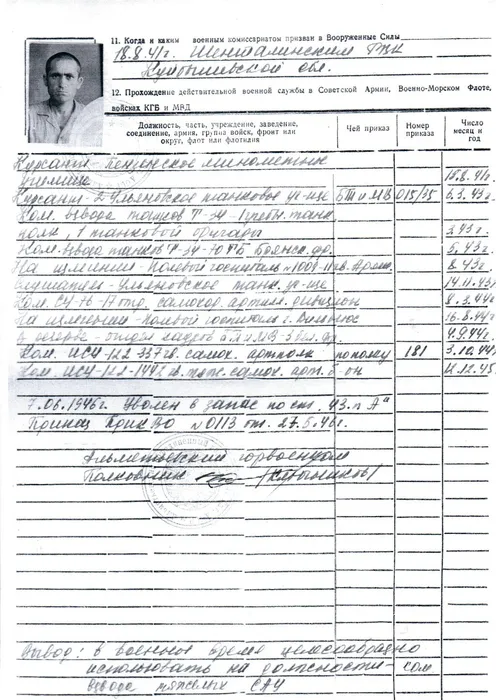 11. Когда и каким военным комиссариатом призван в Вооруженные Силы
18.8.41г. Шенталинским РВК
Куйбышевской обл.
12. Прохождение действительной военной службы в Советской Армии, Военно-Морском Флоте,
войсках КГБ и МВД
Должность, часть, учреждение, заведение, соединение, армия, группа войск, фронт или округ, флот или флотилия
Чей приказ
Номер приказа
Число месяц и год
Курсант - Пензенское минометное
училище 18.8.41г.
Курсант 2 Ульяновское танковое уч-ще БТ и МВ 015/35 6.3.43г
Ком. взвода танков Т-34 - Учебн. танк.
полк, 1 танковой бригады 3.43г
Ком. взвода танков Т-34 - Брянск. фр. 5.43г
На излечении - Полевой госпиталь 8.43г
слушатель - Ульяновское танк. уч-ще 14.11.43г
Ком. СУ-76 - 17 отд. самоход. артил. дивизион 8.3.44г
На излечении - Полевой госпиталь г. Вильнюс 16.8.44г
В резерве - отдел кадров БТ и МВ 3 Бел. фр. 4.9.44г.
Ком. ИСУ-122 - 337 гв. самох. артполк по полку 181 3.10.44г
Ком. ИСУ-122 - 1492 гв. тяж. самох. арт. 12.45г
7.06.1946г. Уволен в запас по ст. 43 п "А"
Приказ ПрикВО №0113 от 27.5.46г.
Альметьевский горвоенком
Полковник
Вывод: в военное время целесообразно
использовать на должности - ком
взвода тяжелых САУ